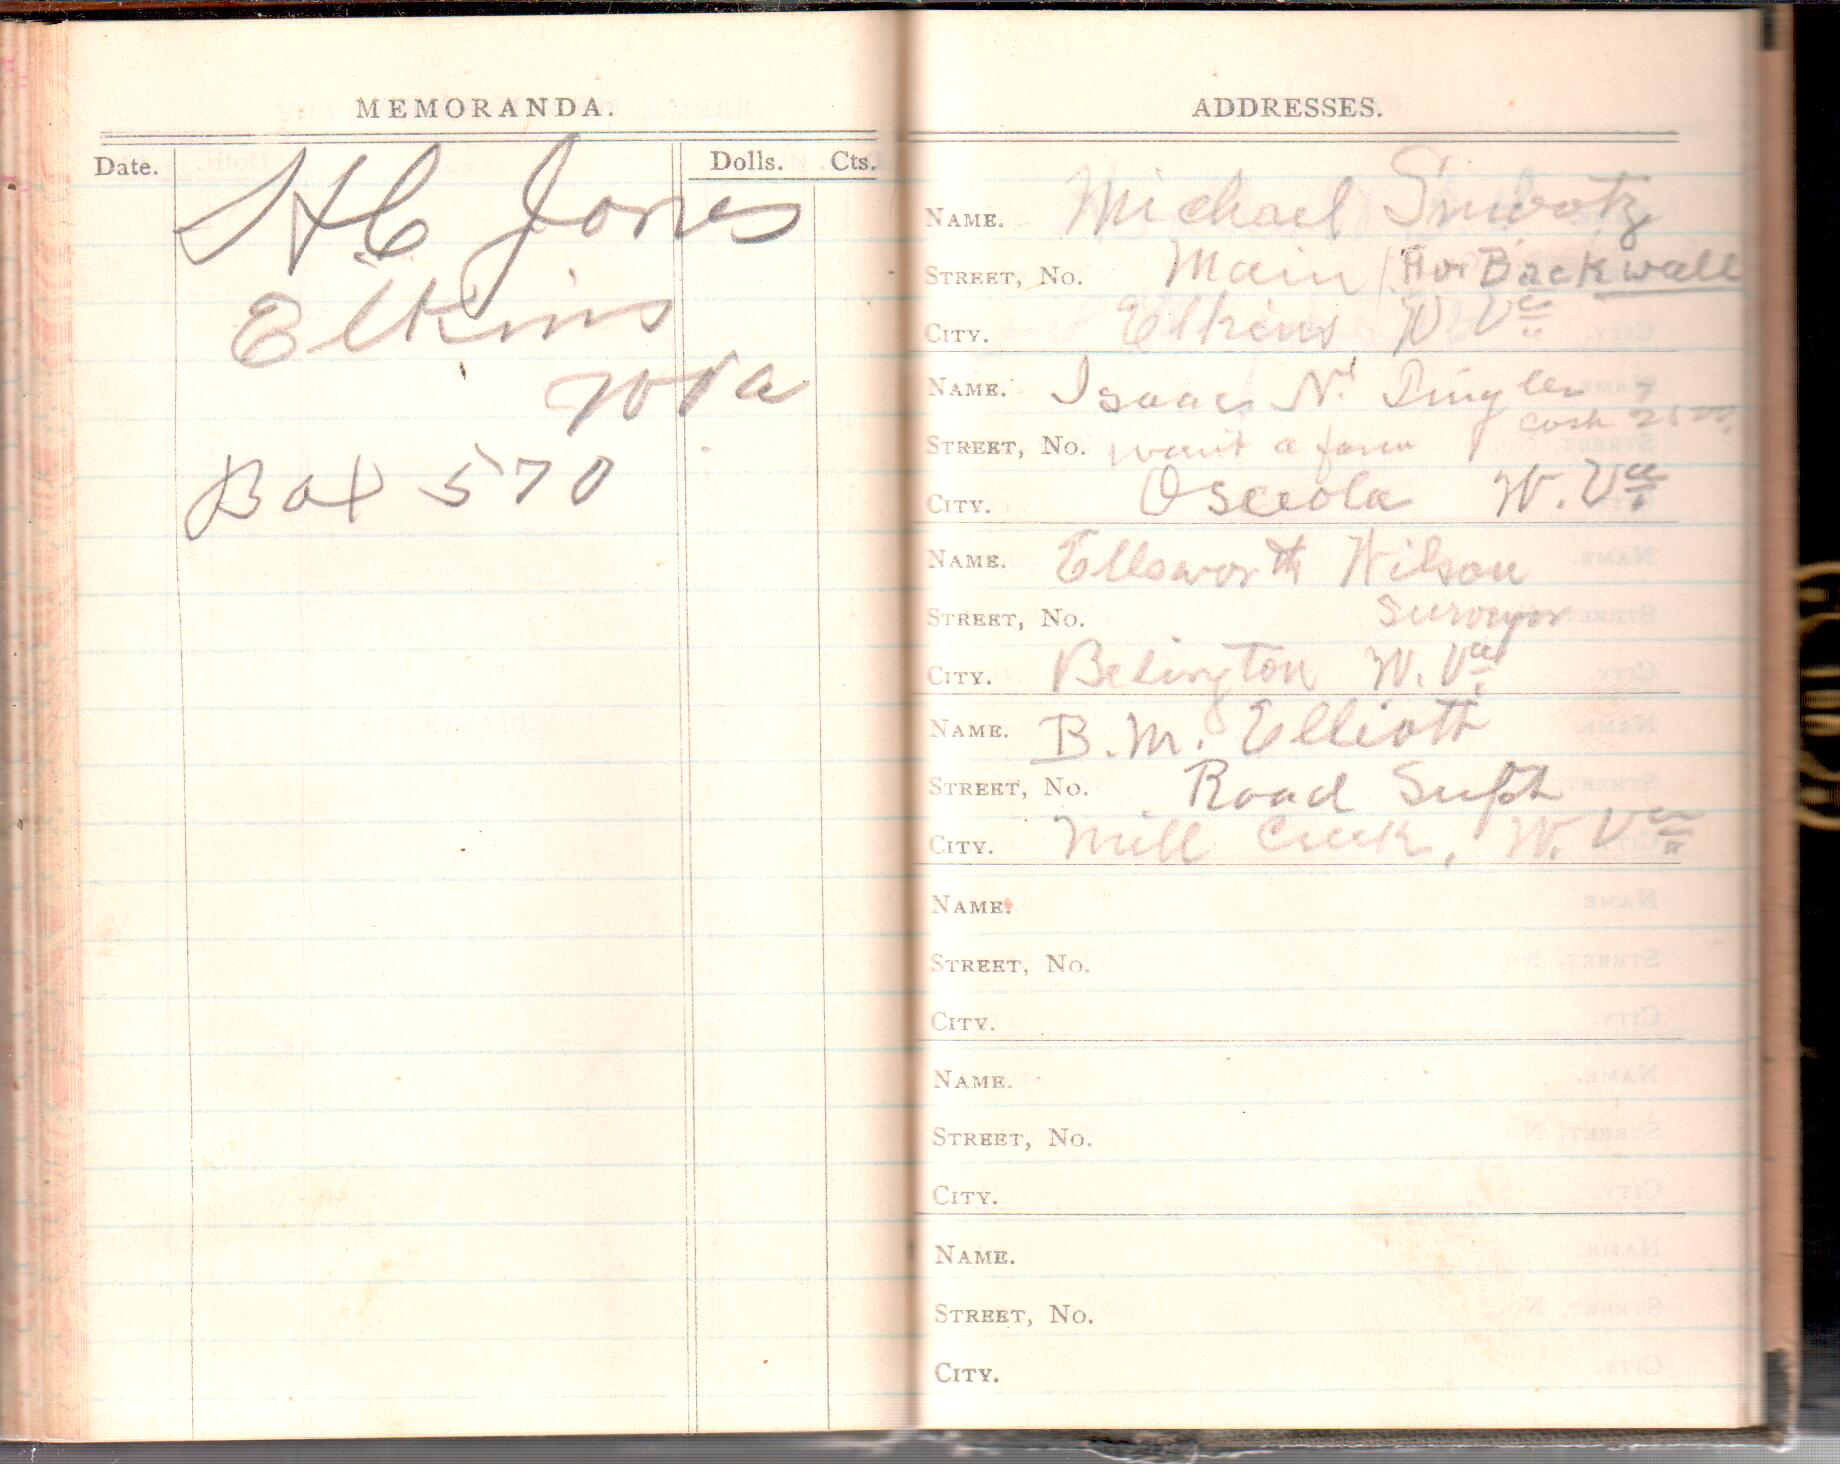 MEMORANDA.
Date. Dolls. Cts.
H C Jones
Elkins
W Va
Box 570
ADDRESSES.
NAME. Michael
STREET, No. Main / For Backwall
CITY. Elkins W Va
NAME. Isaac N. Pingley
cash 2500
STREET, No. want a farm
CITY. Osceola W. Va
NAME. Ellsworth Wilson
STREET, No. Surveyor
CITY. Belington W. Va
NAME. B. M. Elliott
STREET, No. Road Supt
CITY. Mill Creek, W. Va
NAME.
STREET, No.
CITY.
NAME.
STREET, No.
CITY.
NAME.
STREET, No.
CITY.